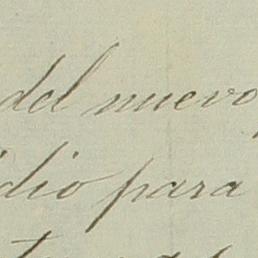 del nuevo
dio para